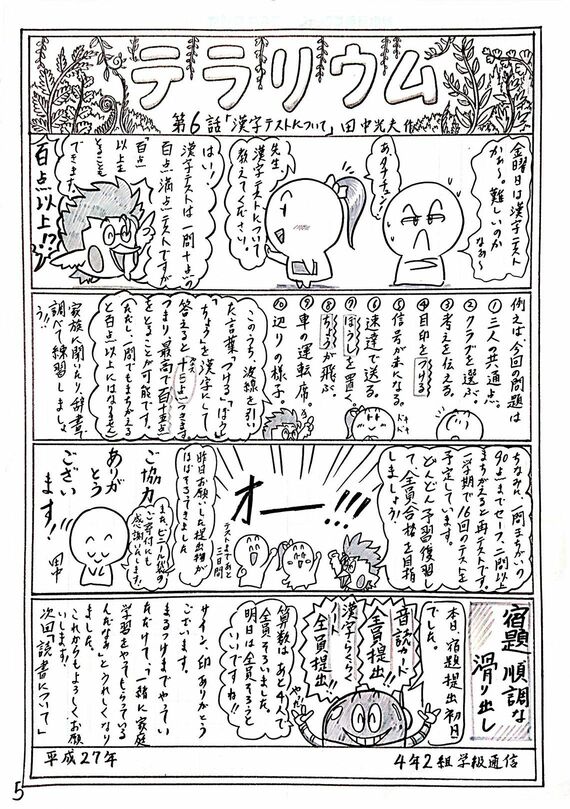 テラリウム
第6話「漢字テストについて」田中光夫作
金曜日は漢字テスト
かぁ〜。難しいのか
なぁ〜
あっタナチュン!
先生
漢字テストについて
教えてください。
はい!
漢字テストは一問十点の
百点満点テストですが
百点
以上を
とることも
できます
百点以上!?
例えば今回の問題は
①二人の共通点。
②クラブを選ぶ。
③考えを伝える。
④目印をつける
⑤信号が赤になる。
⑥速達で送る。
⑦ぼうしを置く。
⑧ちょうが飛ぶ。
⑨車の運転席。
⑩辺りの様子。
このうち、波線を引い
た言葉「つける」「ぼうし」
「ちょう」を漢字にして
答えると「+5点」つきます
つまり最高で百十五点
をとることが可能です。
(ただし、一問でもまちがえる
と百点以上にはなりません)
家族に聞いたり、辞書で
調べて練習しましょ
う!!
ちなみに、一問まちがいの
90点まではセーフ、二問以上
まちがえると再テストです。
一学期で16回のテストを
予定しています。
どんどん予習復習し
て、全員合格を目指
しましょう!
オーー!!!
テストまであと
三日間
昨日お願いした提出物が
ほぼそろってきました
ご協力
ありが
とう
ござい
ます!!
また、ビニール袋の
ご寄付にも
感謝いたします!
田中
宿題 順調な
滑り出し
本日、宿題提出初日
でした。
音読カード
全員提出!!
漢字らくらく
ノート
全員提出!!
やったー
算数はあと4人で
全員そろいました。
明日は全員そろうと
いいですね!!
サイン、印ありがとう
ございます。
まるつけまでやってい
ただけて、「一緒に家庭
学習をやってもらっている
んだなぁ」とうれしくなり
ました。
これからもよろしくお願
いします!
次回「読書について」
平成27年
4年2組 学級通信
5